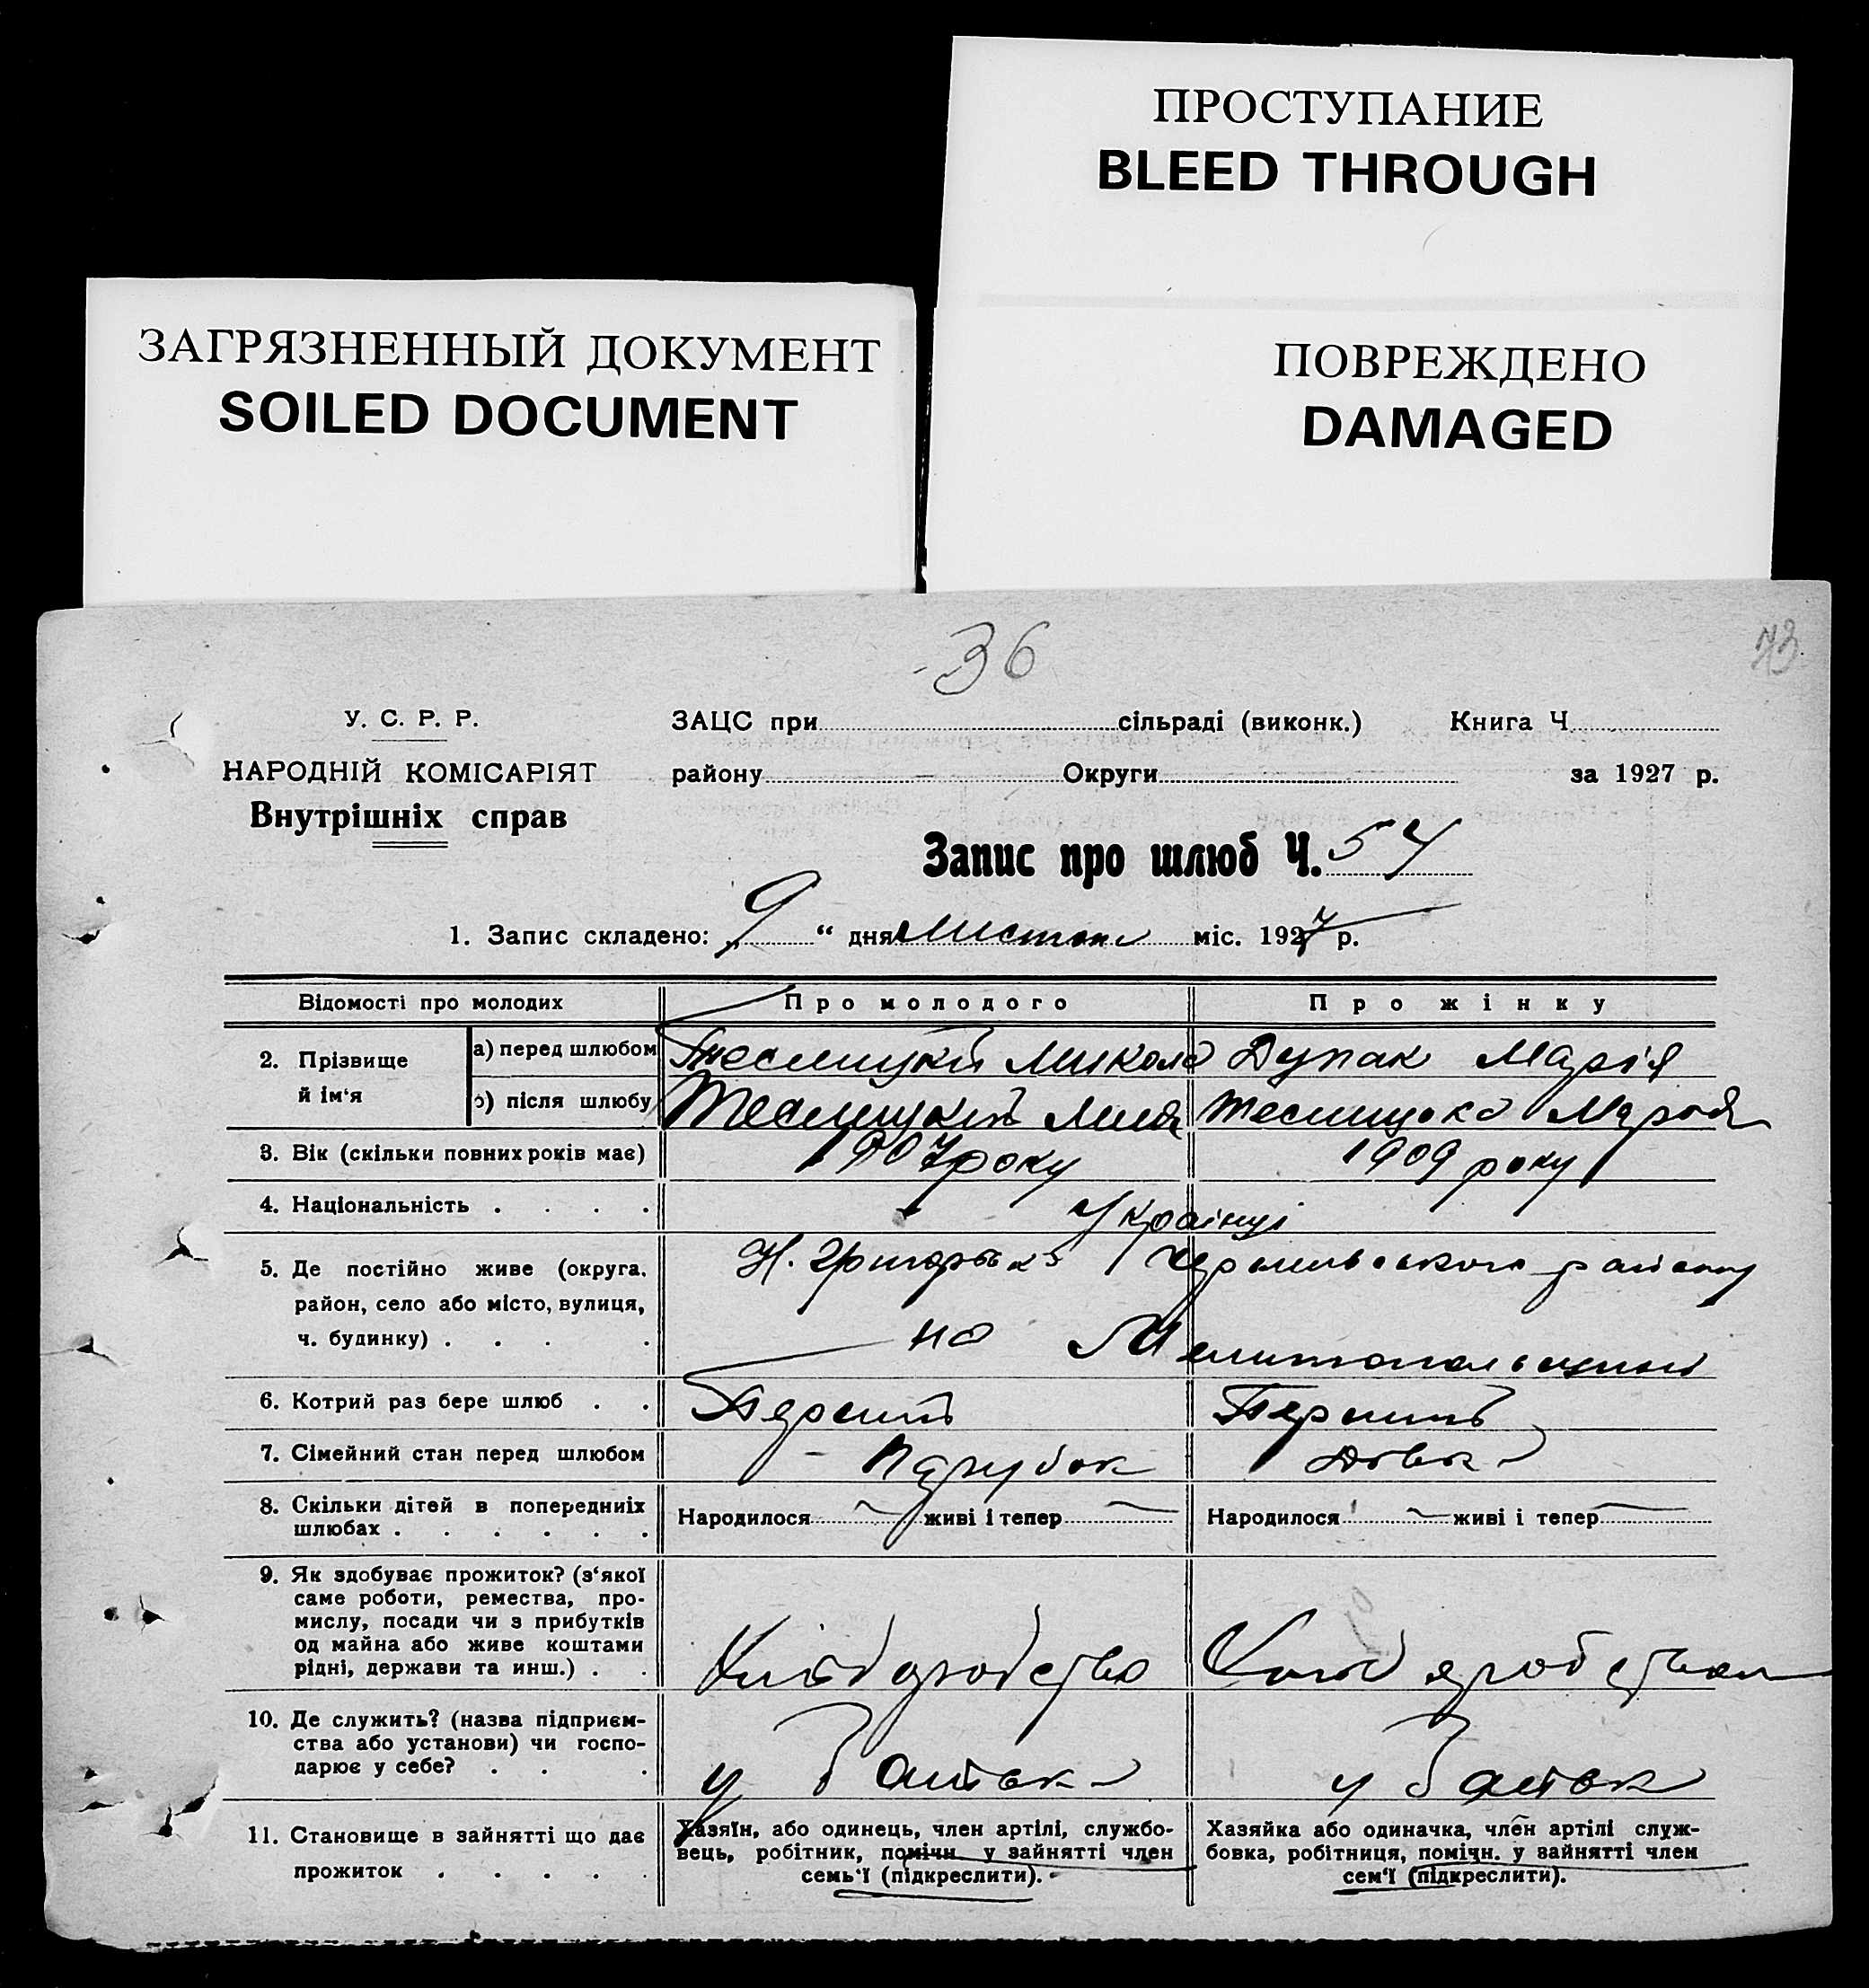 ПРОСТУПАНИЕ
BLEED THROUGH
ЗАГРЯЗНЕННЫЙ ДОКУМЕНТ
SOILED DOCUMENT
ПОВРЕЖДЕНО
DAMAGED
36
73
У. С. Р. Р.
НАРОДНІЙ КОМІСАРІЯТ
Внутрішніх справ
ЗАЦС при сільраді (виконк.) Книга Ч.
району Округи за 1927 р.
Запис про шлюб Ч. 54
1. Запис складено: „ 9 “ дня міс. 1927 р.
Відомості про молодих Про молодого Про жінку
2. Прізвище й ім‘я
а) перед шлюбом Микола Дупак Марія
б) після шлюбу
3. Вік (скільки повних років має) 1907 року 1909 року
4. Національність Українці
5. Де постійно живе (округа,
район, село або місто, вулиця,
ч. будинку) на
6. Котрий раз бере шлюб Перший Перший
7. Сімейний стан перед шлюбом Парубок
8. Скільки дітей в попередниіх
шлюбах
Народилося живі і тепер Народилося живі і тепер
9. Як здобуває прожиток? (з‘якої
саме роботи, ремества, про-
мислу, посади чи з прибутків
од майна або живе коштами
рідні, держави та инш.)
10. Де служить? (назва підприєм-
ства або установи) чи госпо-
дарює у себе?
у у
11. Становище в зайнятті що дає
прожиток
Хазяїн, або одинець, член артілі, службо-
вець, робітник, помічн. у зайнятті член
семь‘ї (підкреслити).
Хазяйка або одиначка, член артілі служ-
бовка, робітниця, помічн. у зайнятті член
сем‘ї (підкреслити).